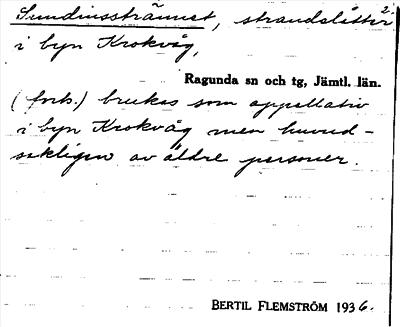 2.
Sundinssträunet, strandslåtter
i byn Krokvåg,
Ragunda sn och tg, Jämtl. län.
(forts.) brukas som appellativ
i byn Krokvåg men huvud-
sakligen av äldre personer.
BERTIL FLEMSTRÖM 1936.